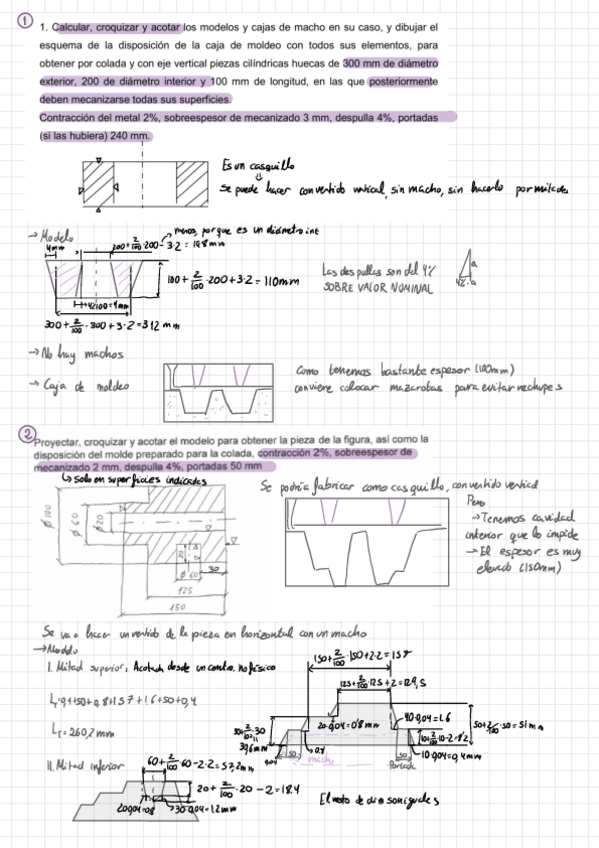 1
1. Calcular, croquizar y acotar los modelos y cajas de macho en su caso, y dibujar el
esquema de la disposición de la caja de moldeo con todos sus elementos, para
obtener por colada y con eje vertical piezas cilíndricas huecas de 300 mm de diámetro
exterior, 200 de diámetro interior y 100 mm de longitud, en las que posteriormente
deben mecanizarse todas sus superficies.
Contracción del metal 2%, sobreespesor de mecanizado 3 mm, despulla 4%, portadas
(si las hubiera) 240 mm.
Es un casquillo
Se puede hacer con vertido vertical, sin macho, sin hacerlo por mitades
→ Modelo
menos, porque es un diámetro int
4mm
200+2/100·200-3·2=198mm
100+2/100·200+3·2=110mm
4%·100=4mm
300+2/100·300+3·2=312mm
Las despullas son del 4%
SOBRE VALOR NOMINAL
a
4%·a
→ No hay machos
→ Caja de moldeo
Como tenemos bastante espesor (100mm)
conviene colocar mazarotas para evitar rechupes
2
Proyectar, croquizar y acotar el modelo para obtener la pieza de la figura, así como la
disposición del molde preparado para la colada, contracción 2%, sobreespesor de
mecanizado 2 mm, despulla 4%, portadas 50 mm
↳ Solo en superficies indicadas
Ø100
Ø60
Ø20
20
Ø60
30
125
150
Se podría fabricar como casquillo, con vertido vertical
Pero
→ Tenemos cavidad
interior que lo impide
→ El espesor es muy
elevado (150mm)
Se va a hacer un vertido de la pieza en horizontal con un macho
→ Modelo
I. Mitad superior: Acotada desde un contra. no físico
150+2/100·150+2·2=157
125+2/100·125+2=129,5
20·0,04=0'8mm
40·0,04=1.6
50+2/100·50=51mm
10·0,04=0,4mm
0.8
macho
50
Portada
LT=260,2mm
II. Mitad inferior
60+2/100·60-2·2=57,2mm
20+2/100·20-2=18.4
20·0,04=0.8
30·0,04=1.2mm
El resto de dim son iguales